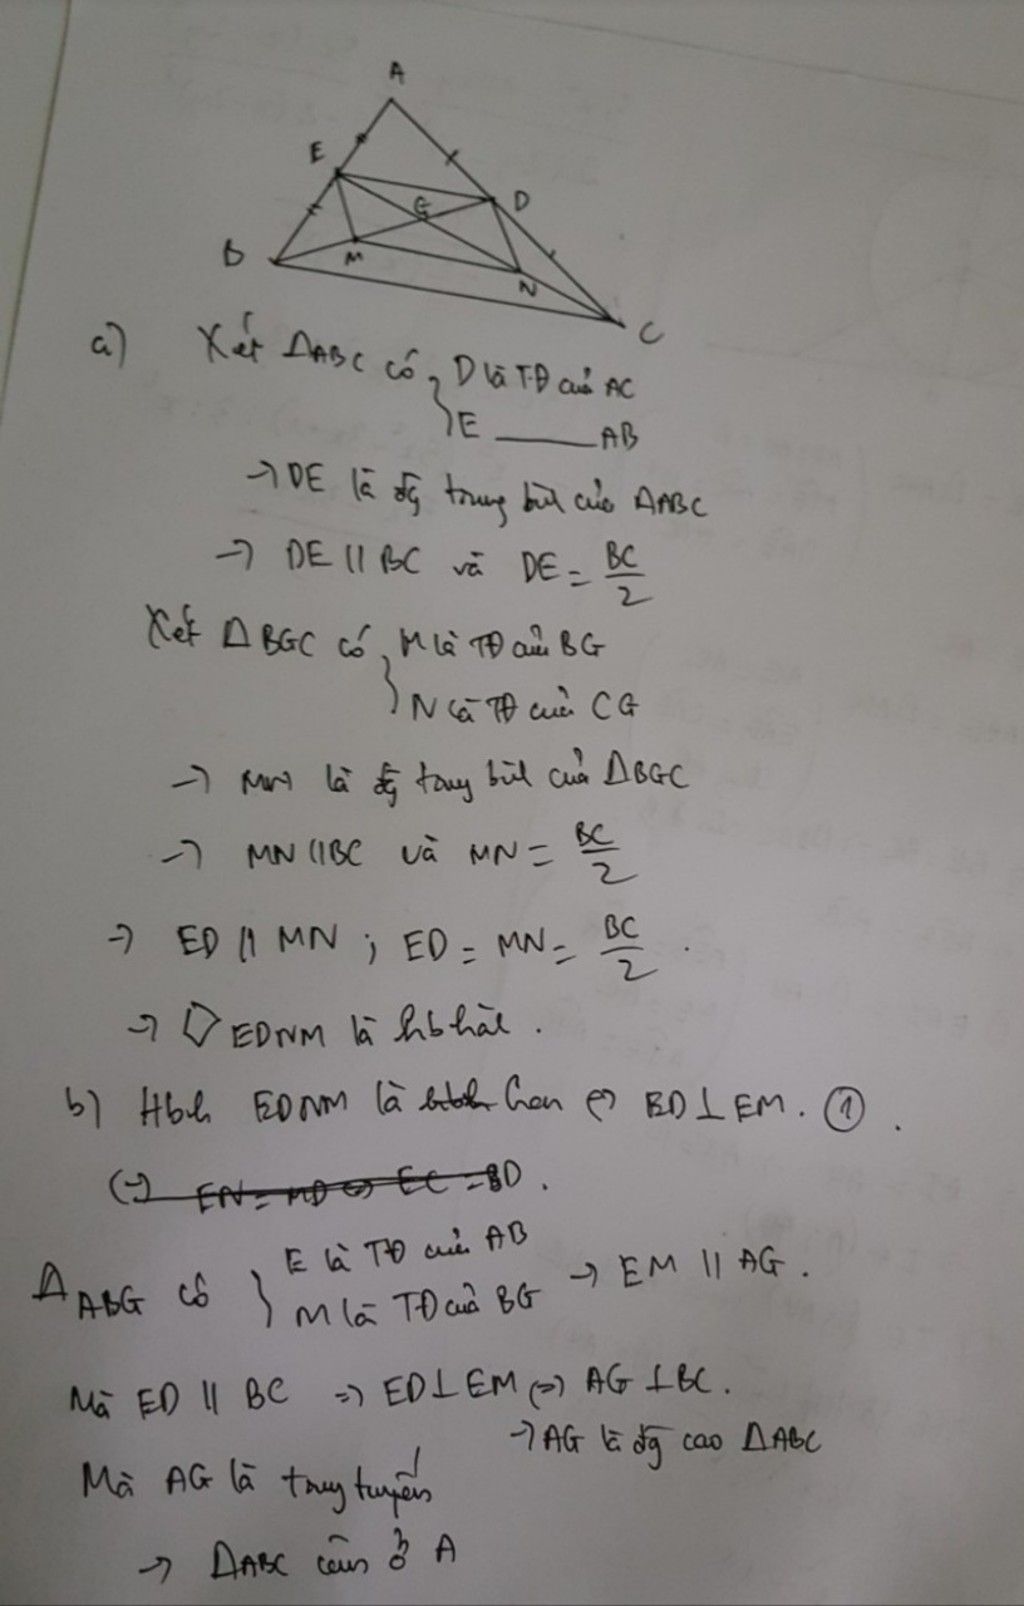 A
E
G
D
B
M
N
C
a) Xét ΔABC có { D là TĐ của AC
E ——— AB
→ DE là đg trung bìl của ΔABC
→ DE || BC và DE = BC/2
Xét ΔBGC có { M là TĐ của BG
N là TĐ của CG
→ MN là đg trung bìl của ΔBGC
→ MN || BC và MN = BC/2
→ ED || MN ; ED = MN = BC/2 .
→ ▱ EDNM là hbhàl .
b) Hbh EDNM là hcn ⇔ ED ⊥ EM. ①.
⇔ EN = MD ⇔ EC = BD .
ΔABG có { E là TĐ của AB
M là TĐ của BG → EM || AG .
Mà ED || BC ⇒ ED ⊥ EM ⇔ AG ⊥ BC .
→ AG là đg cao ΔABC
Mà AG là trung tuyến
→ ΔABC cân ở A